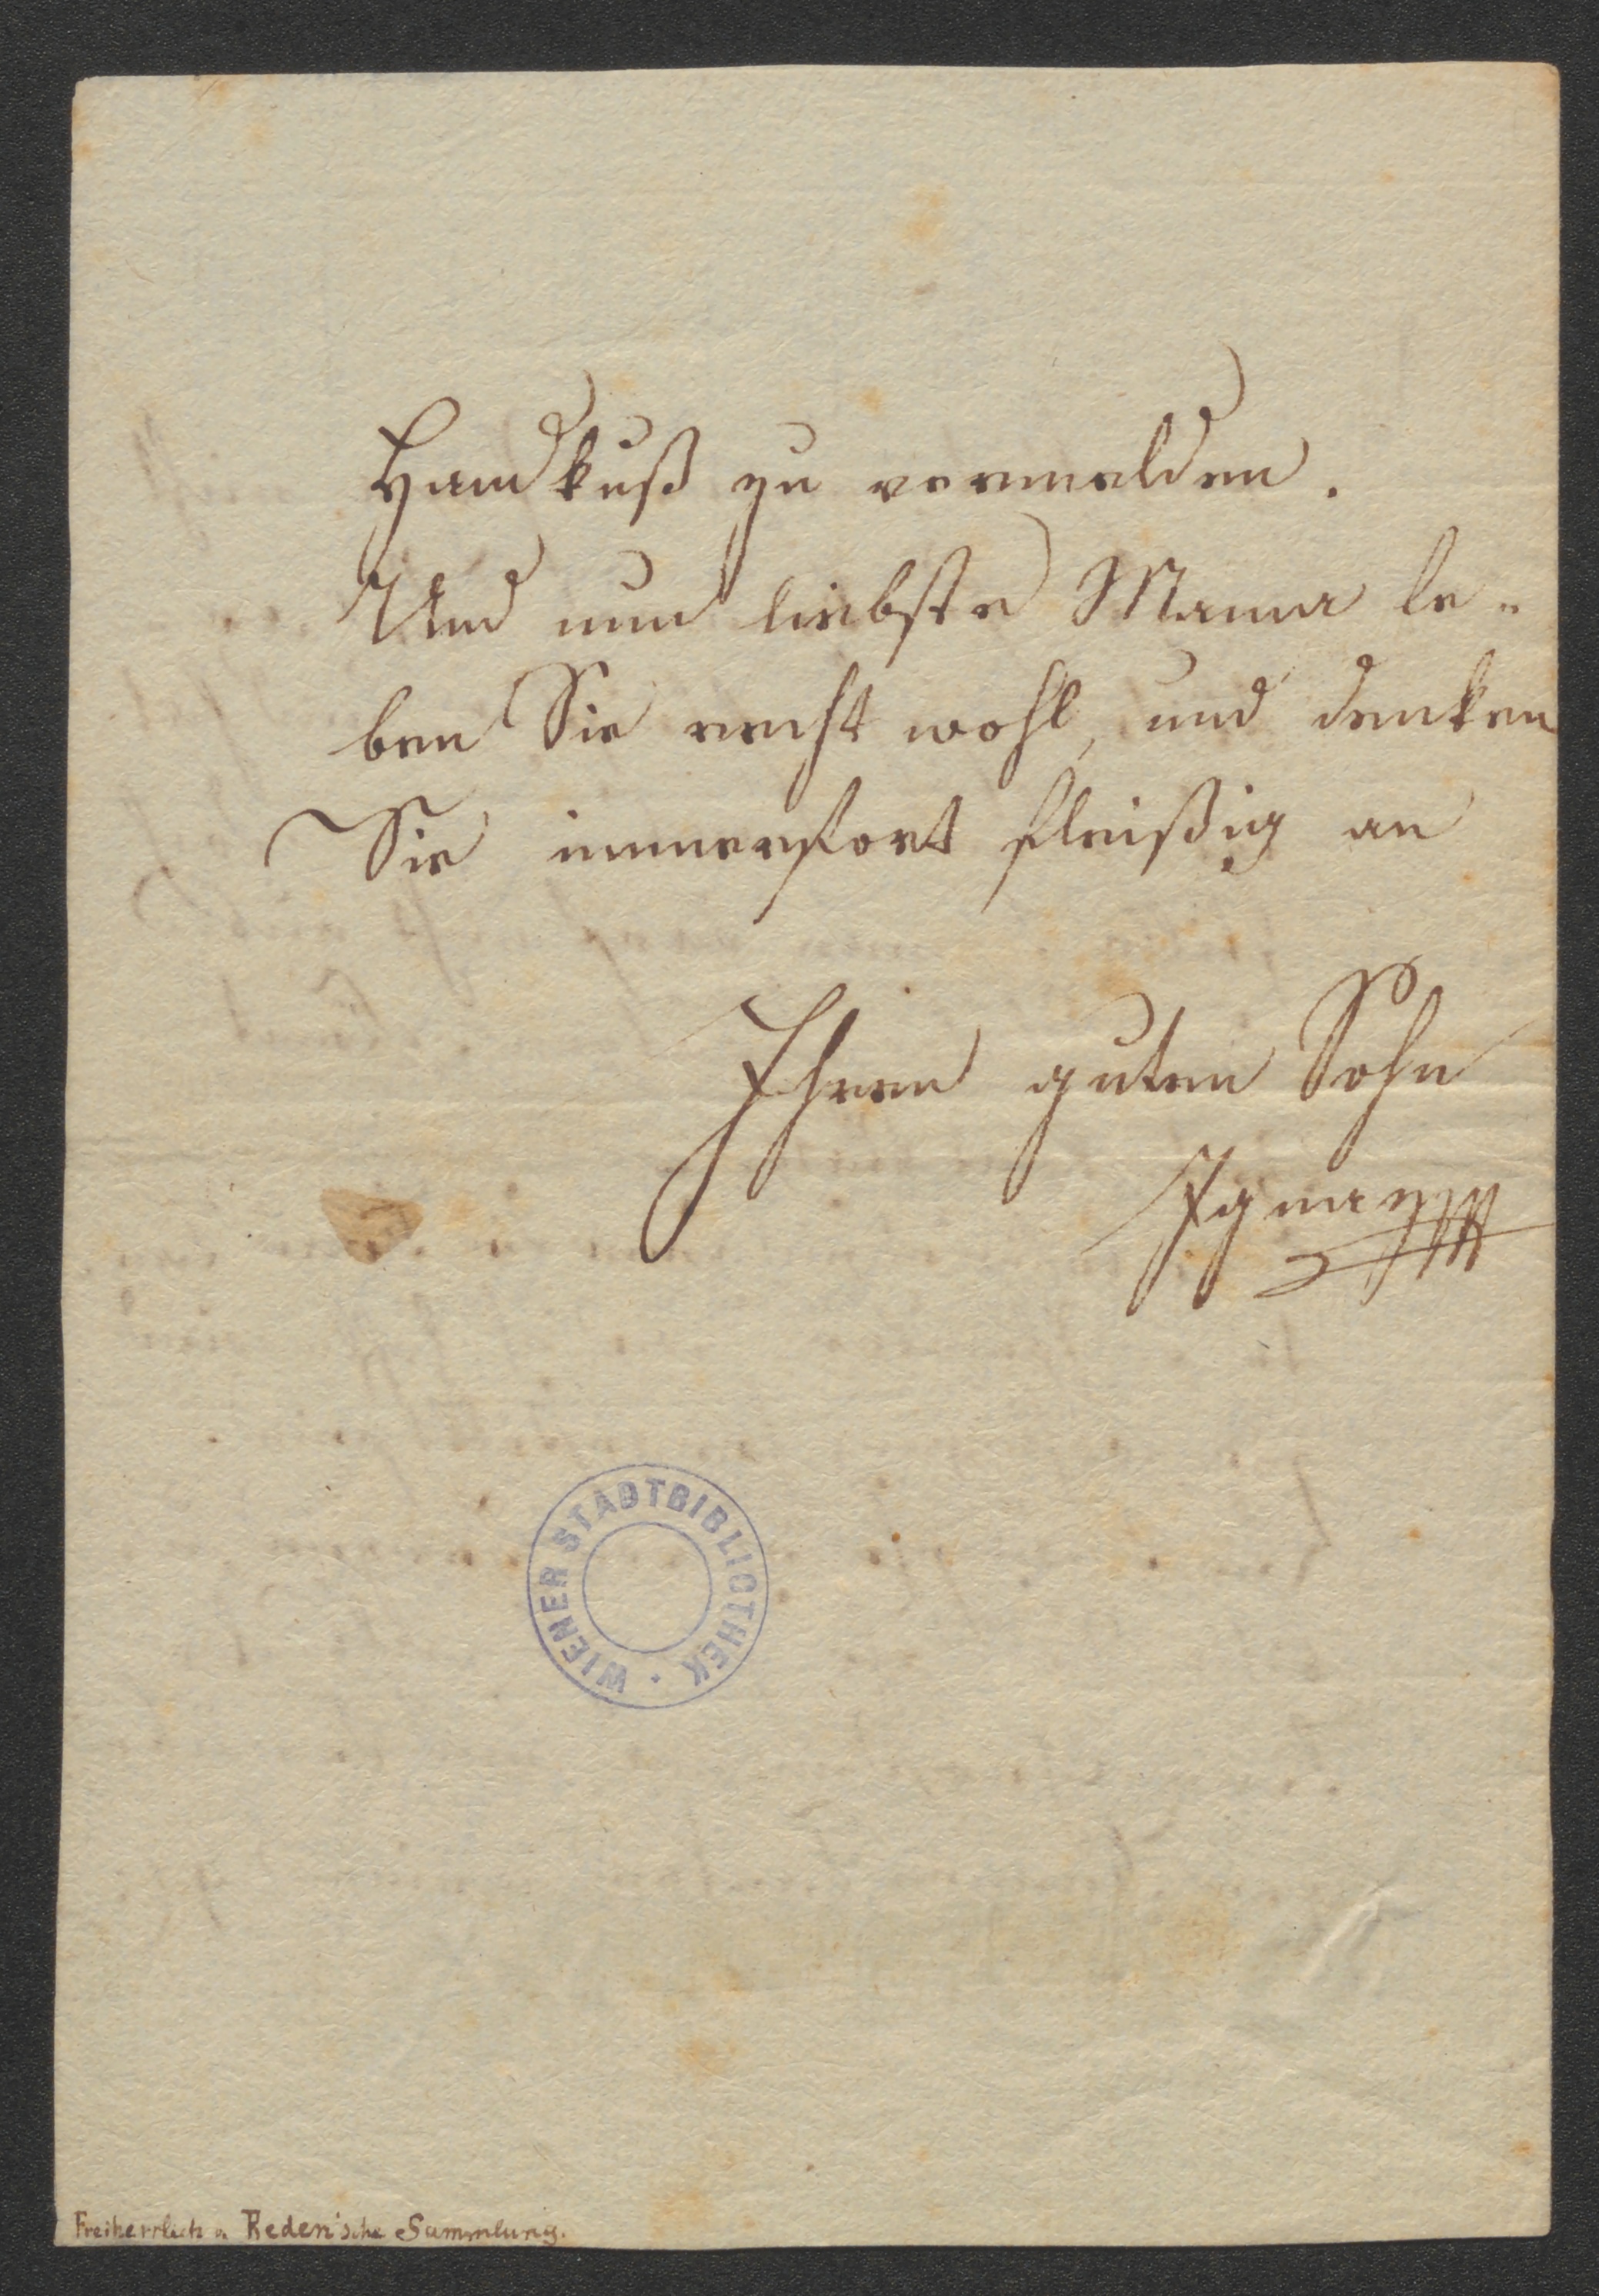 Handkuß zu vermelden.
Und nun liebste Mama le-
ben Sie recht wohl, und denken
Sie immerfort fleißig an
Ihren guten Sohn
Ignaz
WIENER STADTBIBLIOTHEK
Freiherrlich v. Reden'sche Sammlung.